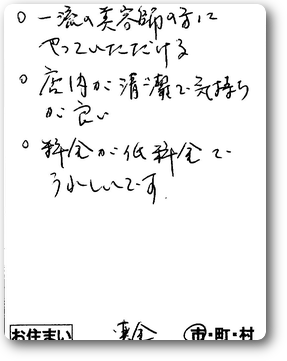 ○ 一流の美容師の方に
やっていただける
○ 店内が清潔で気持ち
が良い
○ 料金が低料金で
うれしいです
お住まい 市・町・村